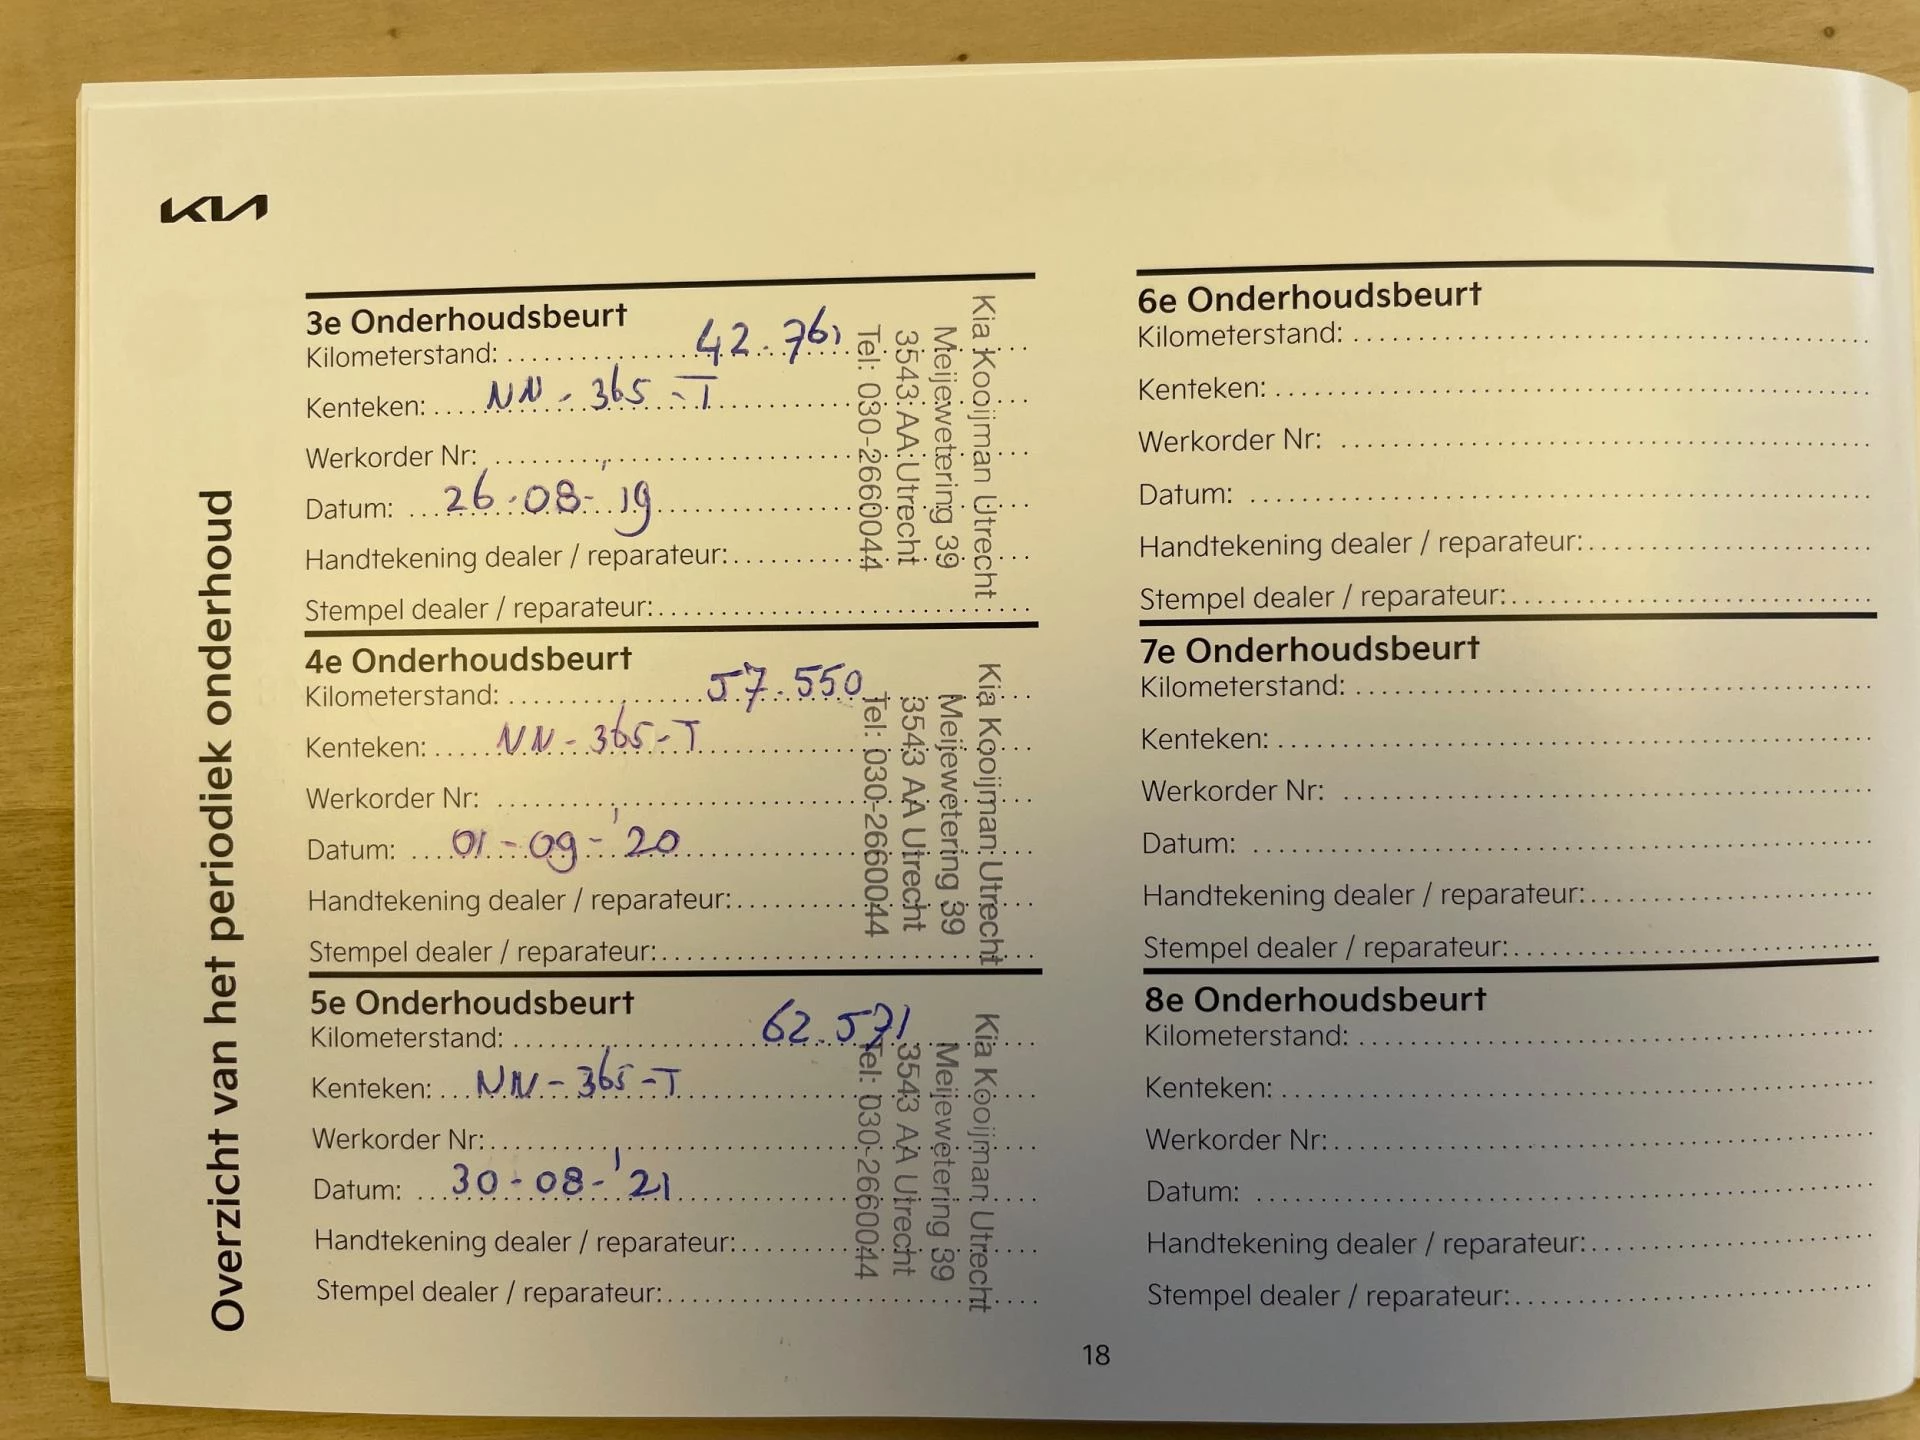 KIA
Overzicht van het periodiek onderhoud
3e Onderhoudsbeurt
Kilometerstand: 42.761
Kenteken: NN-365-T
Werkorder Nr:
Datum: 26-08-'19
Handtekening dealer / reparateur:
Stempel dealer / reparateur:
Kia Kooijman Utrecht
Meijewetering 39
3543 AA Utrecht
Tel: 030-2660044
4e Onderhoudsbeurt
Kilometerstand: 57.550
Kenteken: NN-365-T
Werkorder Nr:
Datum: 01-09-'20
Handtekening dealer / reparateur:
Stempel dealer / reparateur:
Kia Kooijman Utrecht
Meijewetering 39
3543 AA Utrecht
Tel: 030-2660044
5e Onderhoudsbeurt
Kilometerstand: 62.571
Kenteken: NN-365-T
Werkorder Nr:
Datum: 30-08-'21
Handtekening dealer / reparateur:
Stempel dealer / reparateur:
Kia Kooijman Utrecht
Meijewetering 39
3543 AA Utrecht
Tel: 030-2660044
6e Onderhoudsbeurt
Kilometerstand:
Kenteken:
Werkorder Nr:
Datum:
Handtekening dealer / reparateur:
Stempel dealer / reparateur:
7e Onderhoudsbeurt
Kilometerstand:
Kenteken:
Werkorder Nr:
Datum:
Handtekening dealer / reparateur:
Stempel dealer / reparateur:
8e Onderhoudsbeurt
Kilometerstand:
Kenteken:
Werkorder Nr:
Datum:
Handtekening dealer / reparateur:
Stempel dealer / reparateur:
18